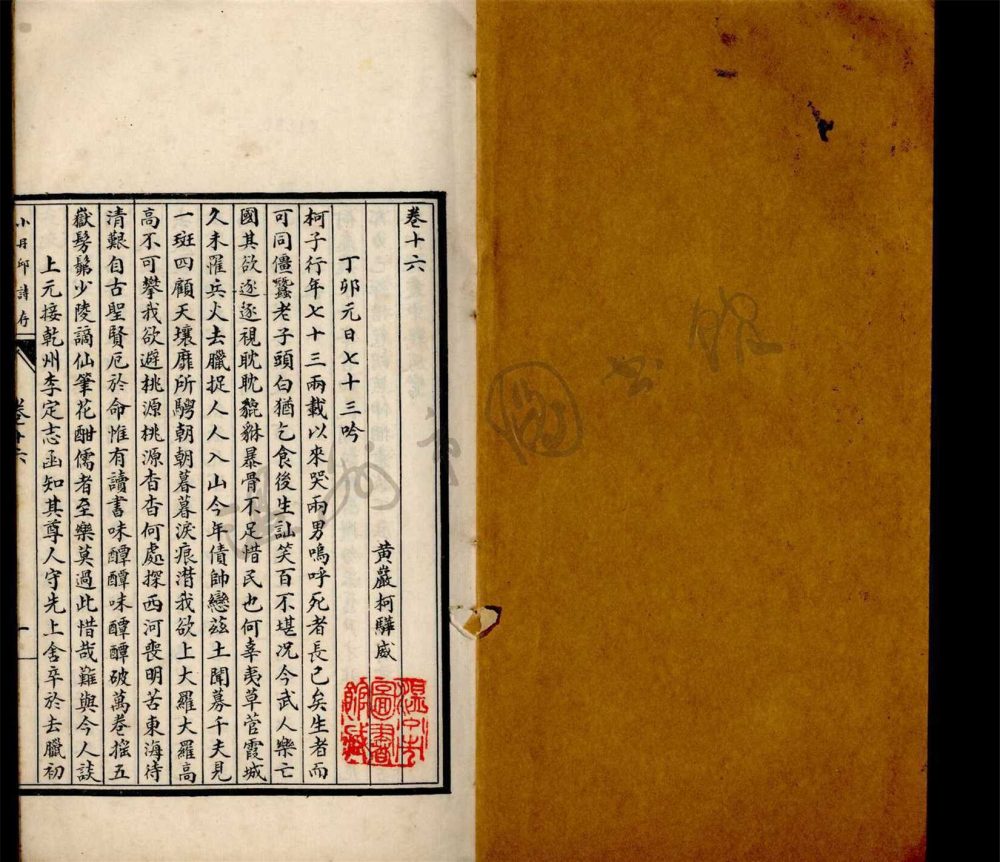 卷十六
黃巖柯驊威
丁卯元日七十三吟
柯子行年七十三兩載以來哭兩男嗚呼死者長已矣生者而
可同僵蠶老子頭白猶乞食後生訕笑百不堪况今武人樂亡
國其欲逐逐視眈眈貔貅暴骨不足惜民也何辜夷草菅霞城
久未罹兵火去臘捉人人入山今年債帥戀兹土聞募千夫見
一斑四顧天壤靡所騁朝朝暮暮淚痕潸我欲上大羅大羅高
高不可攀我欲避桃源桃源杳杳何處探西河喪明苦東海待
清艱自古聖賢厄於命惟有讀書味醰醰味醰醰破萬卷摇五
嶽髣髴少陵謫仙筆花酣儒者至樂莫過此惜哉難與今人談
上元接乾州李定志函知其尊人守先上舍卒於去臘初
小丹邱詩存
卷十六
一
溫州市
圖書
館藏
溫州市圖書館